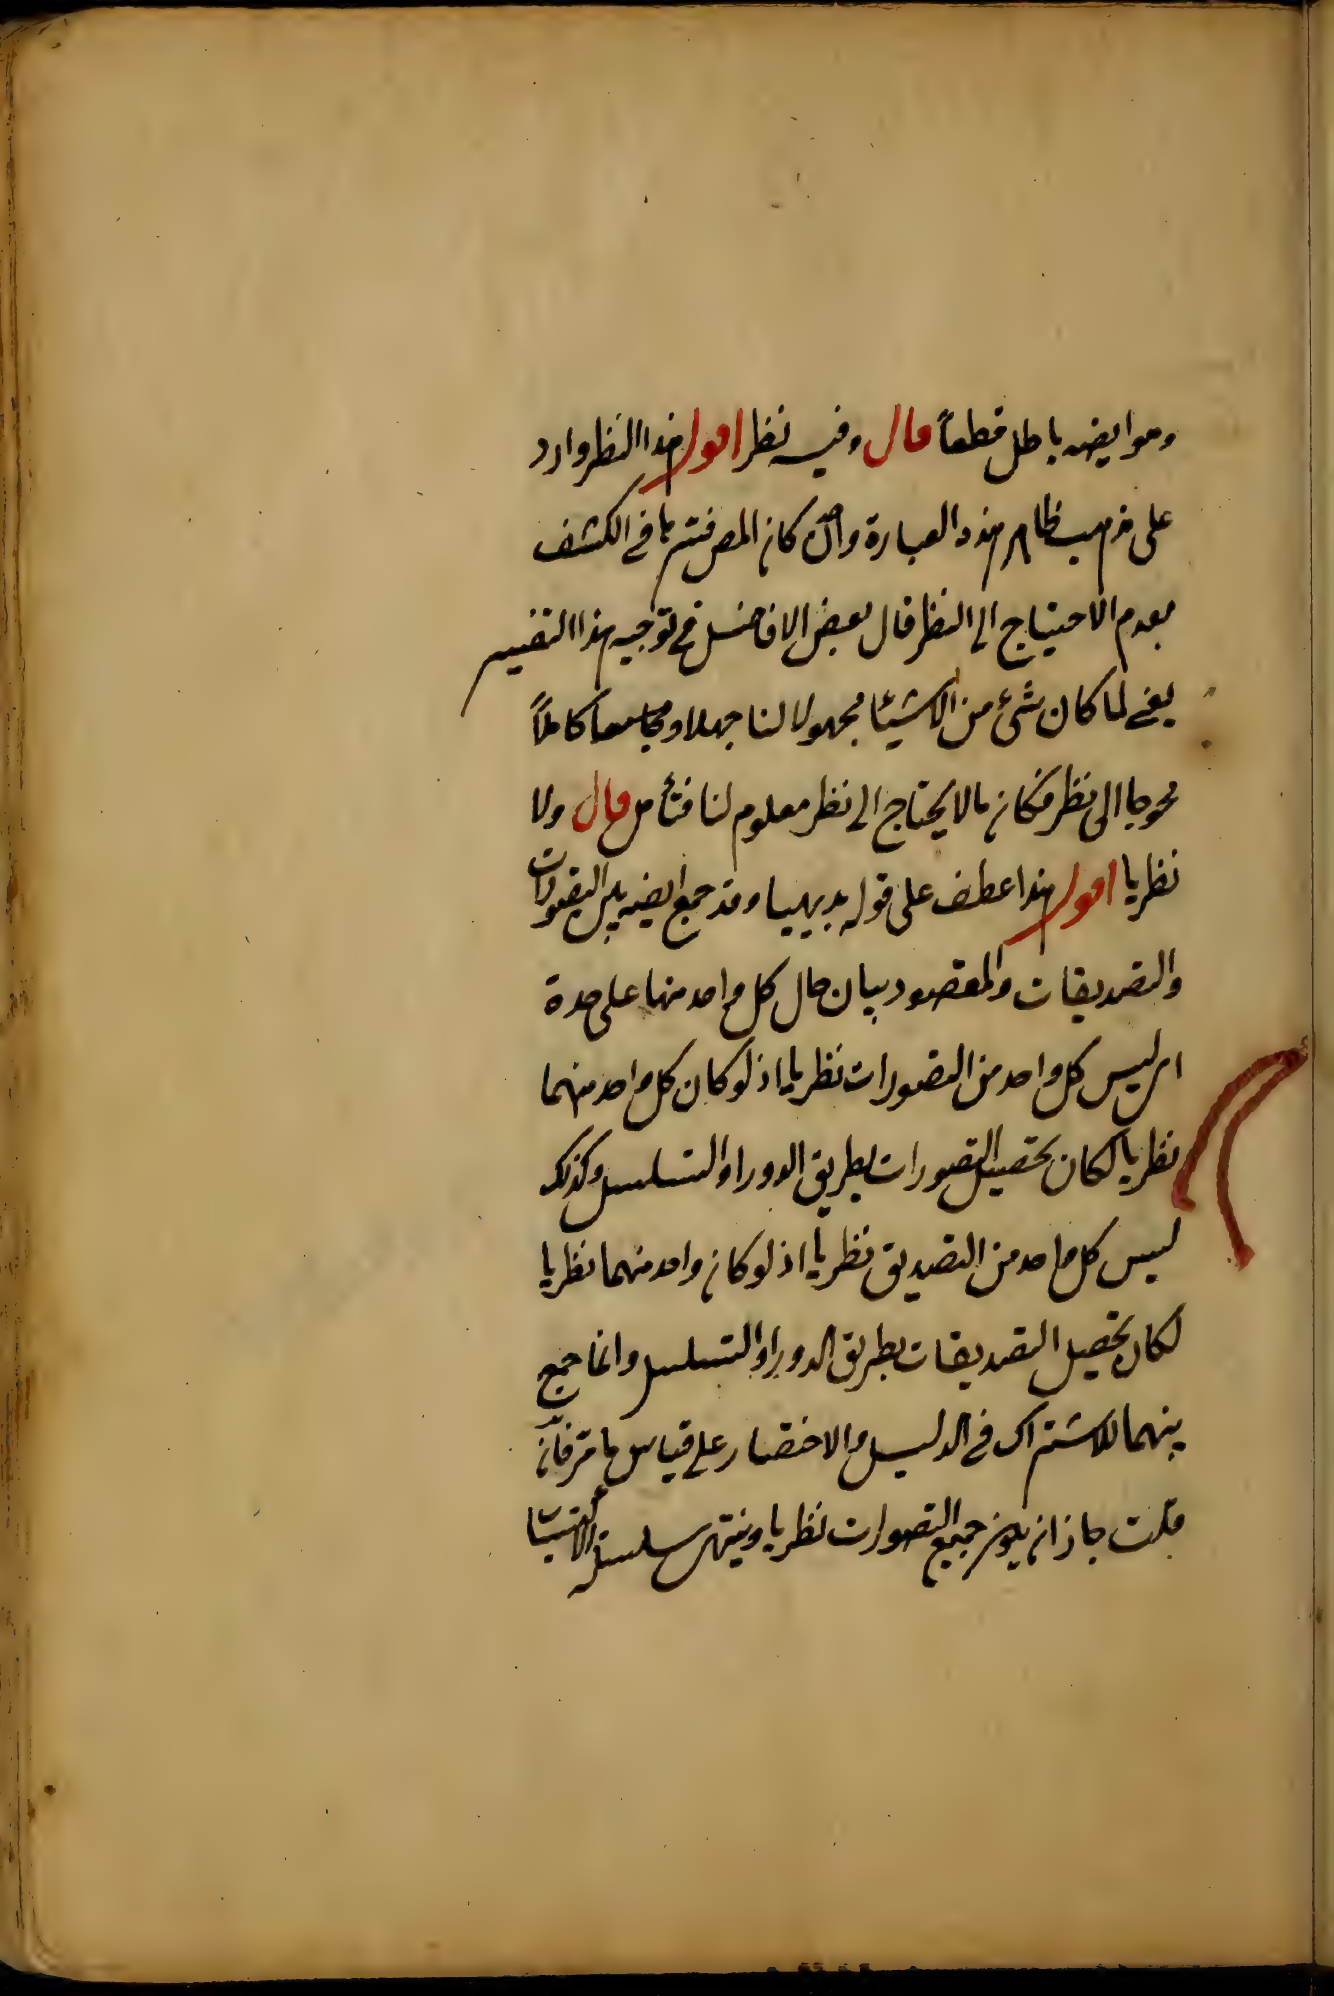 وهو ايضه باطل قطعاً قال وفيه نظر اقول هذا النظر وارد
على مذهب ظاهر هذه العبارة وان كان المص فسرها في الكشف
بعدم الاحتياج الى النظر قال بعض الافاضل في توجيه هذا التفسير
يعني لما كان شئ من الاشيئا مجهولا لنا جهلا و كاملاً
محوجا الى نظر فكان ما لا يحتاج الى نظر معلوم لنا فتأمل قال ولا
نظريا اقول هذا عطف على قوله بديهيا وقد جمع ايضه بين التصورات
والتصديقات والمقصود بيان حال كل واحد منها على حدة
اى ليس كل واحد من التصورات نظريا اذ لو كان كل واحد منهما
نظريا لكان تحصيل التصورات بطريق الدور او التسلسل وكذلك
ليس كل واحد من التصديق نظريا اذ لو كان واحد منهما نظريا
لكان تحصيل التصديقات بطريق الدور او التسلسل وانما جمع
بينهما للاشتراك في الدليل والاختصار على قياس ما مر فان
قلت جاز ان يكون جميع التصورات نظريا وينتهى سلسلة